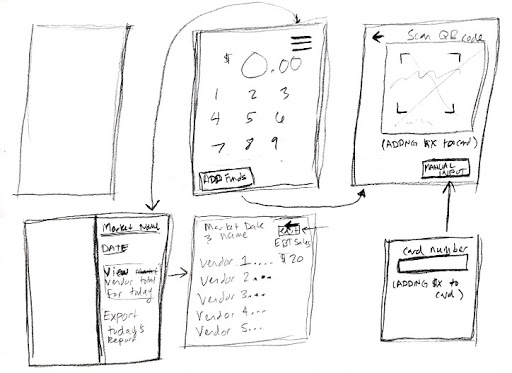 $ 0.00
1 2 3
4 5 6
7 8 9
ADD Funds
Scan QR code
(ADDING $X to card)
MANUAL
INPUT
Market Name
DATE
View
Vendor total
for today
Export
today's
Report
Market Date
& Name
EBT Sales
Vendor 1.... $20
Vendor 2...
Vendor 3...
Vendor 4...
Vendor 5...
card number
(ADDING $X to
card)